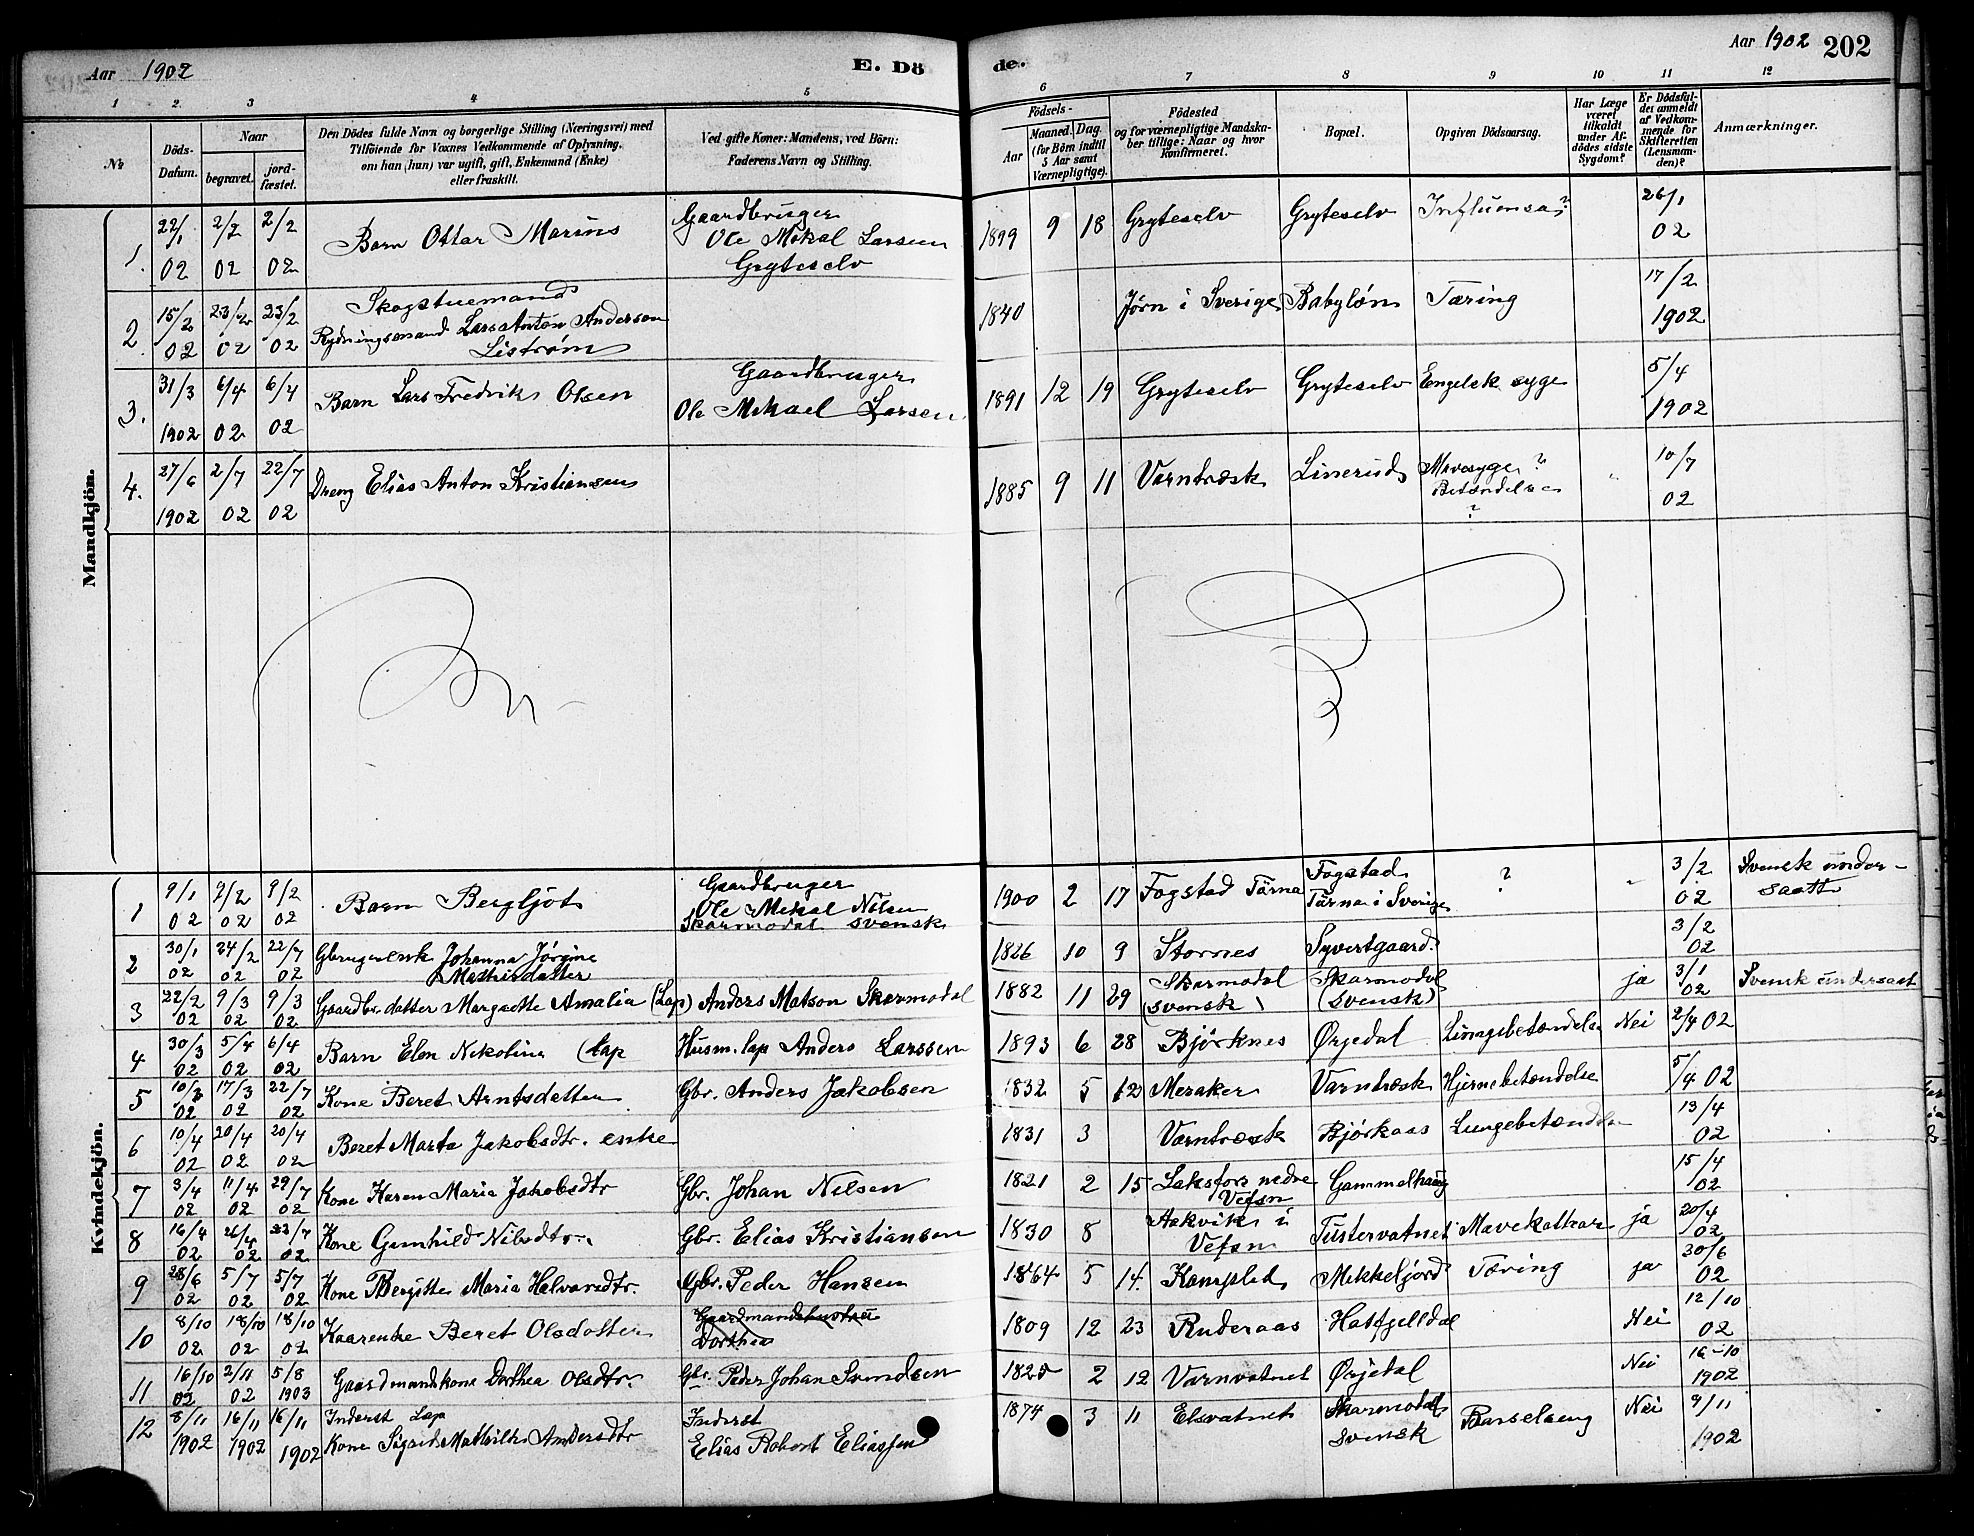 Aar 1902
E. Dö
de.
Aar 1902 202
1 2. 3 4 5
6 7 8 9 10 11 12
№
Döds-Datum.
Naar
begravet.
jord-fæstet.
Den Dödes fulde Navn og borgerlige Stilling (Næringsvei) med
Tilföiende for Voxnes Vedkommende af Oplysning,
om han (hun) var ugift, gift, Enkemand (Enke)
eller fraskilt.
Ved gifte Koner: Mandens, ved Börn:
Faderens Navn og Stilling.
Födsels-
Aar
Maaned.
Dag.
(for Börn indtil
5 Aar samt
Værnepligtige).
Födested
og for værnepligtige Mandska-
ber tillige: Naar og hvor
konfirmeret.
Bopæl.
Opgiven Dödsaarsag.
Har Læge
været
tilkaldt
under Af-
dödes sidste
Sygdom?
Er Dödsfal-
det anmeldt
af Vedkom-
mende for
Skifteretten
(Lensman-
den)?
Anmærkninger.
Mandkjön.
1. 22/1 02 2/2 02 2/2 02 Barn Ottar Marius Gaardbruger Ole Mikal Larsen Gryteselv 1899 9 18 Gryteselv Gryteselv Influensa? 26/1 02
2 15/2 02 23/2 02 23/2 02 Skogstuemand Rydningsmand Lars Anton Anderson Liström 1840 Jørn i Sverige Babylón Tæring 17/2 1902
3. 31/3 1902 6/4 02 6/4 02 Barn Lars Fredrik Olsen Gaardbruger Ole Mikael Larsen 1891 12 19 Gryteselv Gryteselv Engelsk syge 5/4 1902
4. 27/6 1902 2/7 02 22/7 02 Dreng Elias Anton Kristiansen 1885 9 11 Varntræsk Linerud Mavesyge? Betændelse ? " 10/7 02
Kvindekjön.
1 9/1 02 9/2 02 9/2 02 Barn Bergljot Gaardbruger Ole Mikal Nilsen Skarmodal svensk 1900 2 17 Fogstad Tärna Fogstad Tärna i Sverige ? " 3/2 02 Svensk undersaatt
2 30/1 02 24/2 02 22/7 02 Gbrugerenk Johanna Jørgine Mathisdatter 1826 10 9 Stornes Syvertgaard. 3/2 02
3 22/2 02 9/3 02 9/3 02 Gaardbr. datter Margrethe Amalia (Lap) Anders Matson Skarmodal 1882 11 29 Skarmodal (svensk) Skarmodal (svensk) ja 3/1 02 Svensk undersaat
4 30/3 02 5/4 02 6/4 02 Barn Elen Nikolina (lap Husm. lap Anders Larssen 1893 6 28 Bjørknes Ørjedal Lungebetændelse Nei 2/4 02
5 10/3 02 17/3 02 22/7 02 Kone Beret Arntsdatter Gbr. Anders Jakobsen 1832 5 12 Meraker Varntræsk Hjernebetændelse 5/4 02
6 10/4 02 20/4 02 20/4 02 Beret Marta Jakobsdtr. enke 1831 3 Varntræsk Bjørkaas Lungebetændelse 13/4 02
7 3/4 02 11/4 02 29/7 02 Kone Karen Maria Jakobsdtr Gbr. Johan Nilsen 1821 2 15 Laksfors nedre Vefsn Gammelhaug 15/4 02
8 16/4 02 26/4 02 22/7 02 Kone Gunhild Nilsdtr. Gbr. Elias Kristiansen 1830 8 Aakvik i Vefsn Tustervatnet Mavekathar ja 20/4 02
9 28/6 02 5/7 02 5/7 02 Kone Bergitte Maria Halvardtr. Gbr. Peder Hansen 1864 5 14. Kampli Mikkeljord Tæring ja 30/6 02
10 8/10 02 18/10 02 18/10 02 Kaarenke Beret Olsdatter Gaardmandshustru Dorthea 1809 12 23 Ruderaas Hatfjelldal Nei 12/10 02
11 16/10 02 2/11 02 5/8 1903 Gaardmandskone Dorthea Olsdtr. Gbr. Peder Johan Svendsen 1825 2 12 Varnvatnet Ørjedal Nei 16-10 1902
12 8/11 1902 16/11 1902 16/11 1902 Inderst Lap Kone Sigrid Mathilde Andersdtr Inderst Elias Robert Eliassen 1874 3 11 Elsvatnet Skarmodal svensk Barselseng Nei 9/11 1902